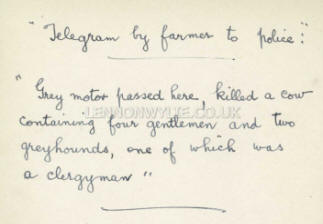 "Telegram by farmer to police":
"Grey motor passed here, killed a cow
LENNONWYLIE.CO.UK
containing four gentlemen and two
greyhounds, one of which was
a clergyman"